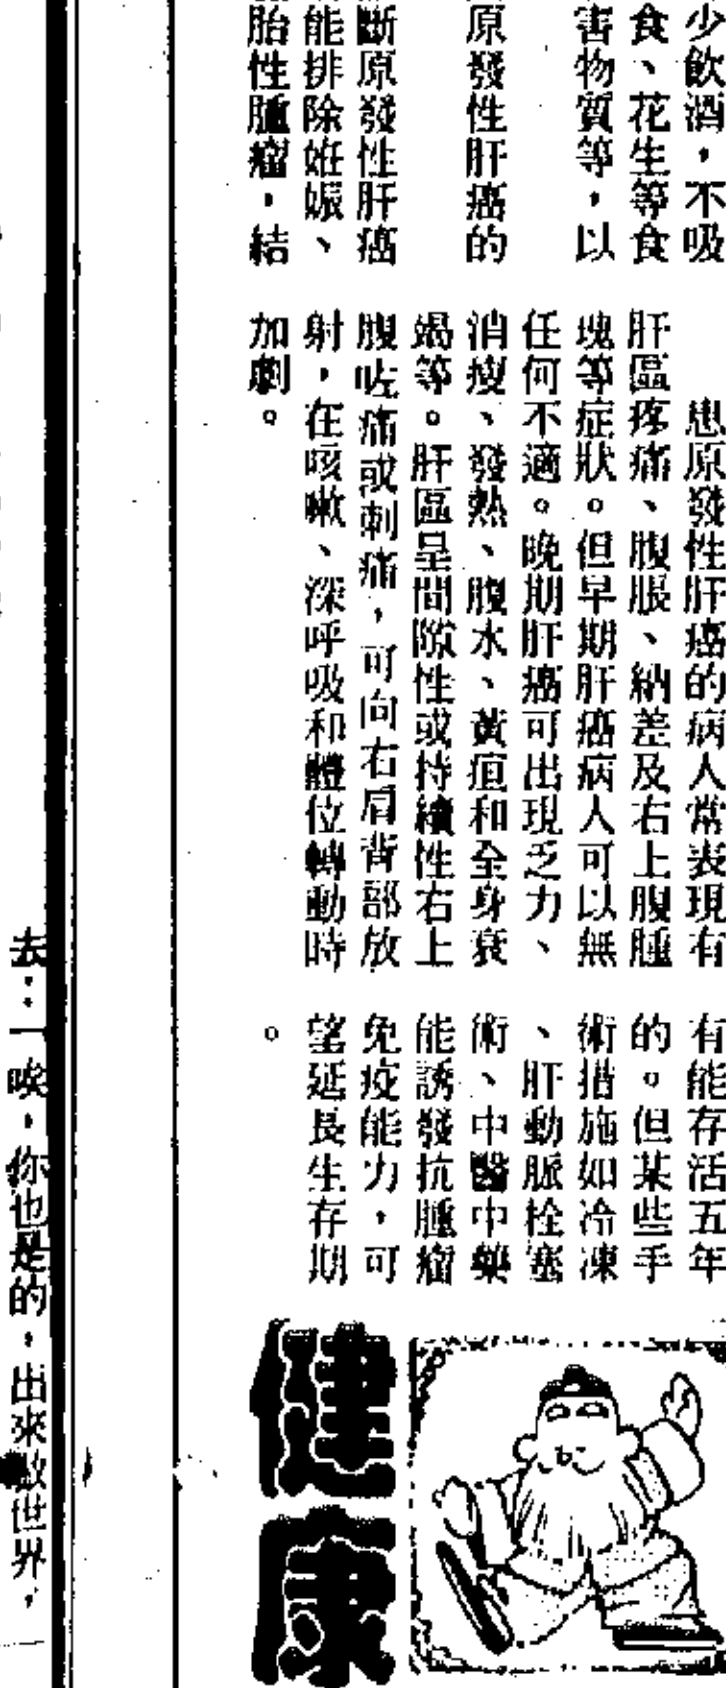 少飲酒，不吸
食、花生等食
害物質等，以
原發性肝癌的
斷原發性肝癌
能排除妊娠、
胎性腫瘤，結
患原發性肝癌的病人常表現有
肝區疼痛、腹脹、納差及右上腹腫
塊等症狀。但早期肝癌病人可以無
任何不適。晚期肝癌可出現乏力、
消瘦、發熱、腹水、黃疸和全身衰
竭等。肝區呈間隙性或持續性右上
腹咗痛或刺痛，可向右肩背部放
射，在咳嗽、深呼吸和體位轉動時
加劇。
有能存活五年
的。但某些手
術措施如冷凍
、肝動脈栓塞
術、中醫中藥
能誘發抗腫瘤
免疫能力，可
望延長生存期
。
健康
去：一唉，你也是的，出來世界，